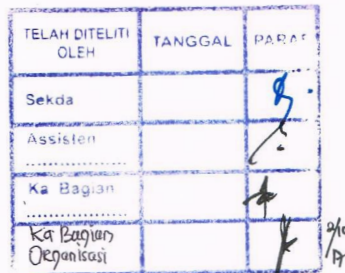 TELAH DITELITI
OLEH
TANGGAL
PARAF
Sekda
Assisten
..................
Ka Bagian
..................
Ka Bagian
Organisasi